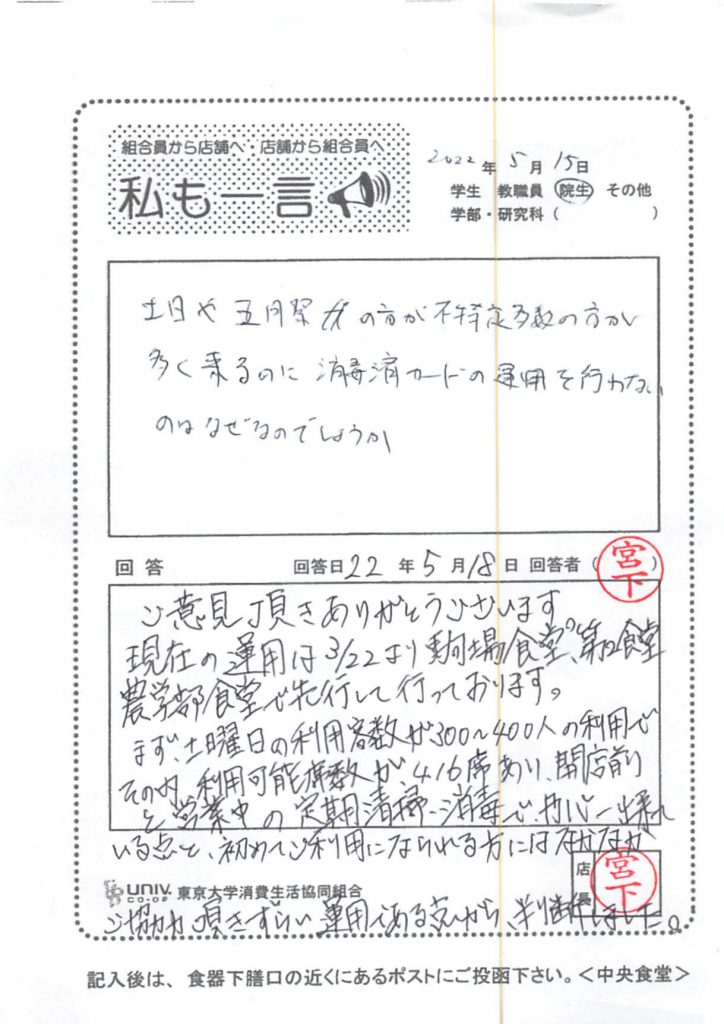 組合員から店舗へ・店舗から組合員へ
私も一言
2022年5月15日
学生 教職員 院生 その他
学部・研究科（ ）
土日や五月祭 の方が不特定多数の方が
多く乗るのに 消毒済カードの運用を行わない
のはなぜなのでしょうか
回答 回答日22年5月18日 回答者（宮下）
ご意見頂きありがとうございます
現在の運用は3/22より駒場食堂、第2食堂
農学部食堂で先行して行っております。
まず、土曜日の利用客数が300〜400人の利用で
その内、利用可能席数が、416席あり、開店前
と営業中の定期清掃・消毒で、カバー出来て
いる点と、初めてご利用になられる方にはなかなか
店長 宮下
UNIV. CO-OP 東京大学消費生活協同組合
ご協力頂きずらい運用である点から、判断しました。
記入後は、食器下膳口の近くにあるポストにご投函下さい。＜中央食堂＞